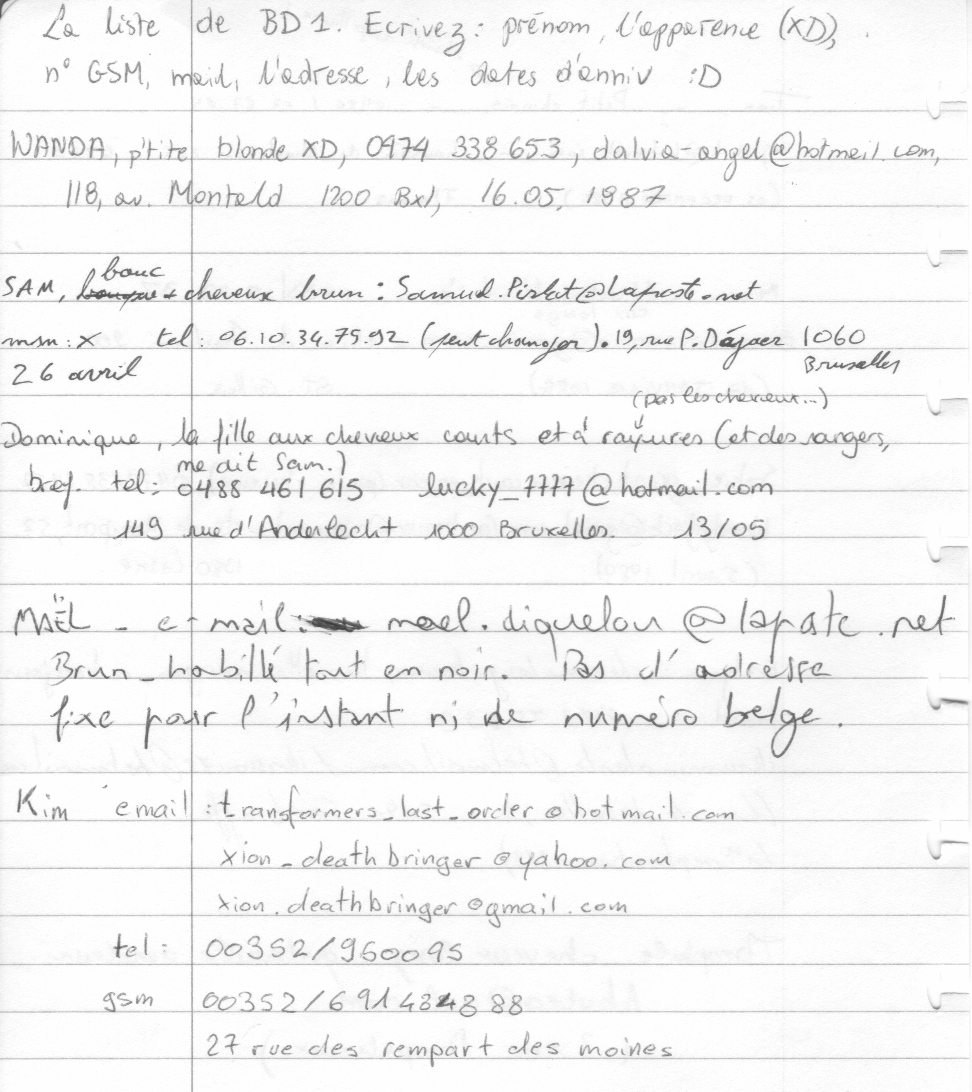 La liste de BD 1. Ecrivez : prénom, l'apparence (XD),
n° GSM, mail, l'adresse, les dates d'anniv :D
WANDA, p'tite blonde XD, 0974 338 653, dalvia-angel@hotmeil.com,
118, av. Monteld 1200 Bxl, 16.05.1987
bouc
SAM, + cheveux brun : Samuel.Pislot@laposte.net
msn : x tel : 06.10.34.75.92 (peut changer). 19, rue P. Dejaer 1060
26 avril Bruxelles
(pas les cheveux...)
Dominique, la fille aux cheveux courts et à rayures (et des rangers,
me dit Sam.)
bref. tel : 0488 461 615 lucky_7777@hotmail.com
149 rue d'Anderlecht 1000 Bruxelles. 13/05
MAËL - e-mail : mael.diquelou@lapate.net
Brun - habillé tout en noir. Pas d'adresse
fixe pour l'instant ni de numéro belge.
Kim email : transformers_last_order@hotmail.com
xion_deathbringer@yahoo.com
xion.deathbringer@gmail.com
tel : 00352/950095
gsm 00352/691434888
27 rue des rempart des moines